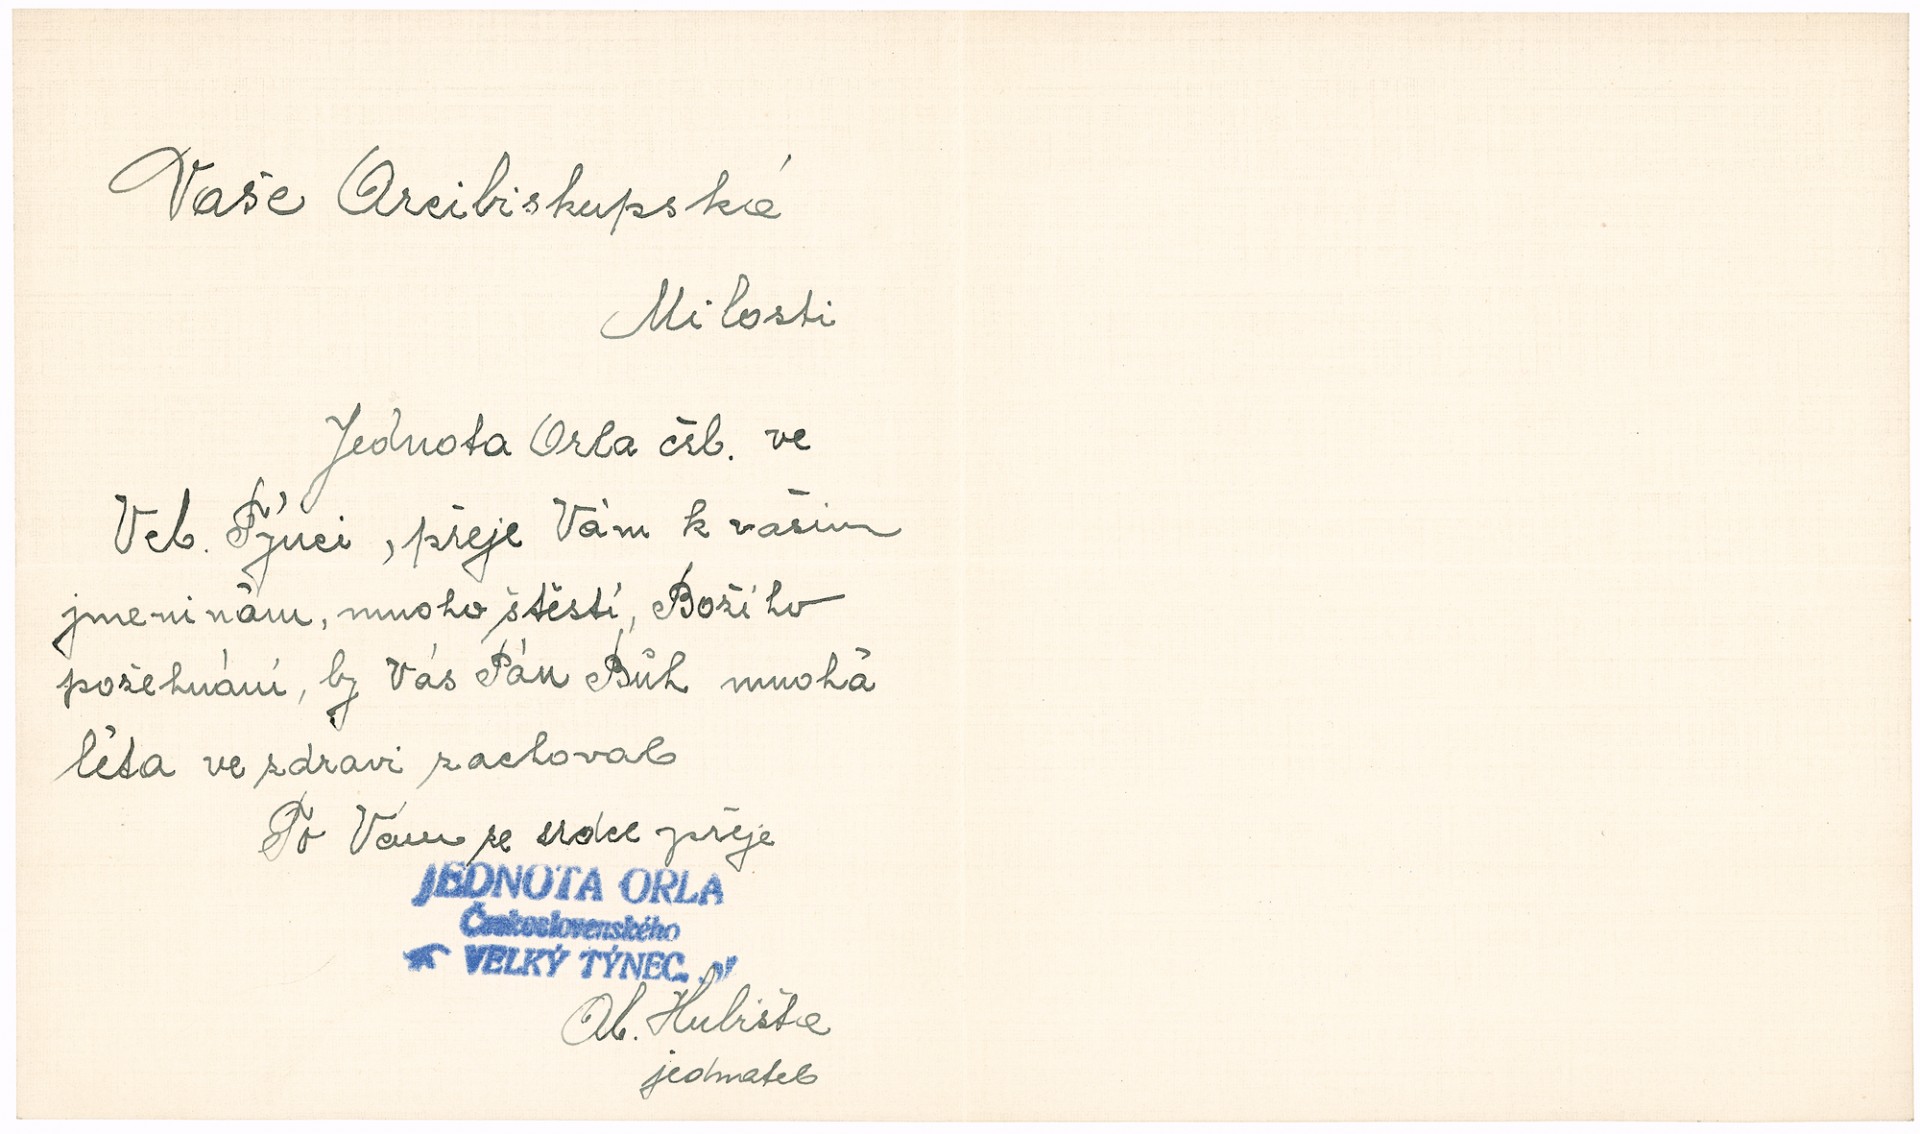 Vaše Arcibiskupská
Milosti
Jednota Orla čsl. ve
Vel. Týnci, přeje Vám k vašim
jmeninám, mnoho štěstí, Božího
požehnání, by Vás Pán Bůh mnohá
léta ve zdravi zachoval
To Vám ze srdce přeje
JEDNOTA ORLA
Československého
VELKÝ TÝNEC
Al.
jednatel